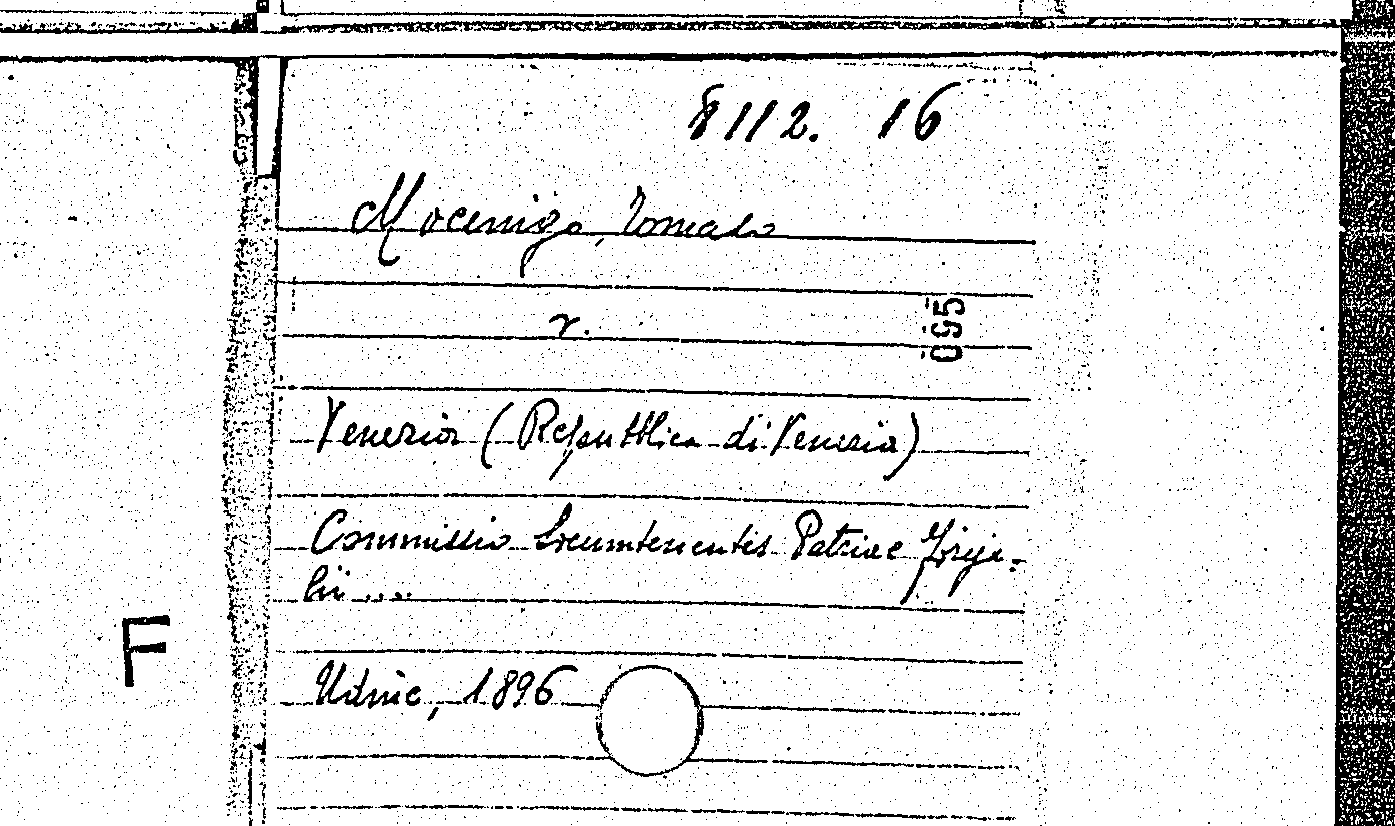 8112. 16
Mocenigo, Tomaso
v.
095
Venezia (Repubblica di Venezia)
Commissio Locumtenentis Patriae Foroju-
lii ....
F
Udine, 1896